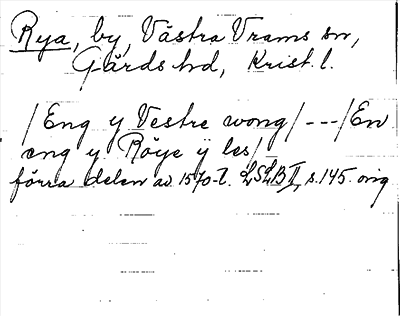 Rya, by, Västra Vrams sn,
Gärds hd, Krist. l.
/Eng y Vestre wong/ --- /En
eng y Röye ÿ les/
förra delen av 1570-t. LSLB II, s. 145. orig